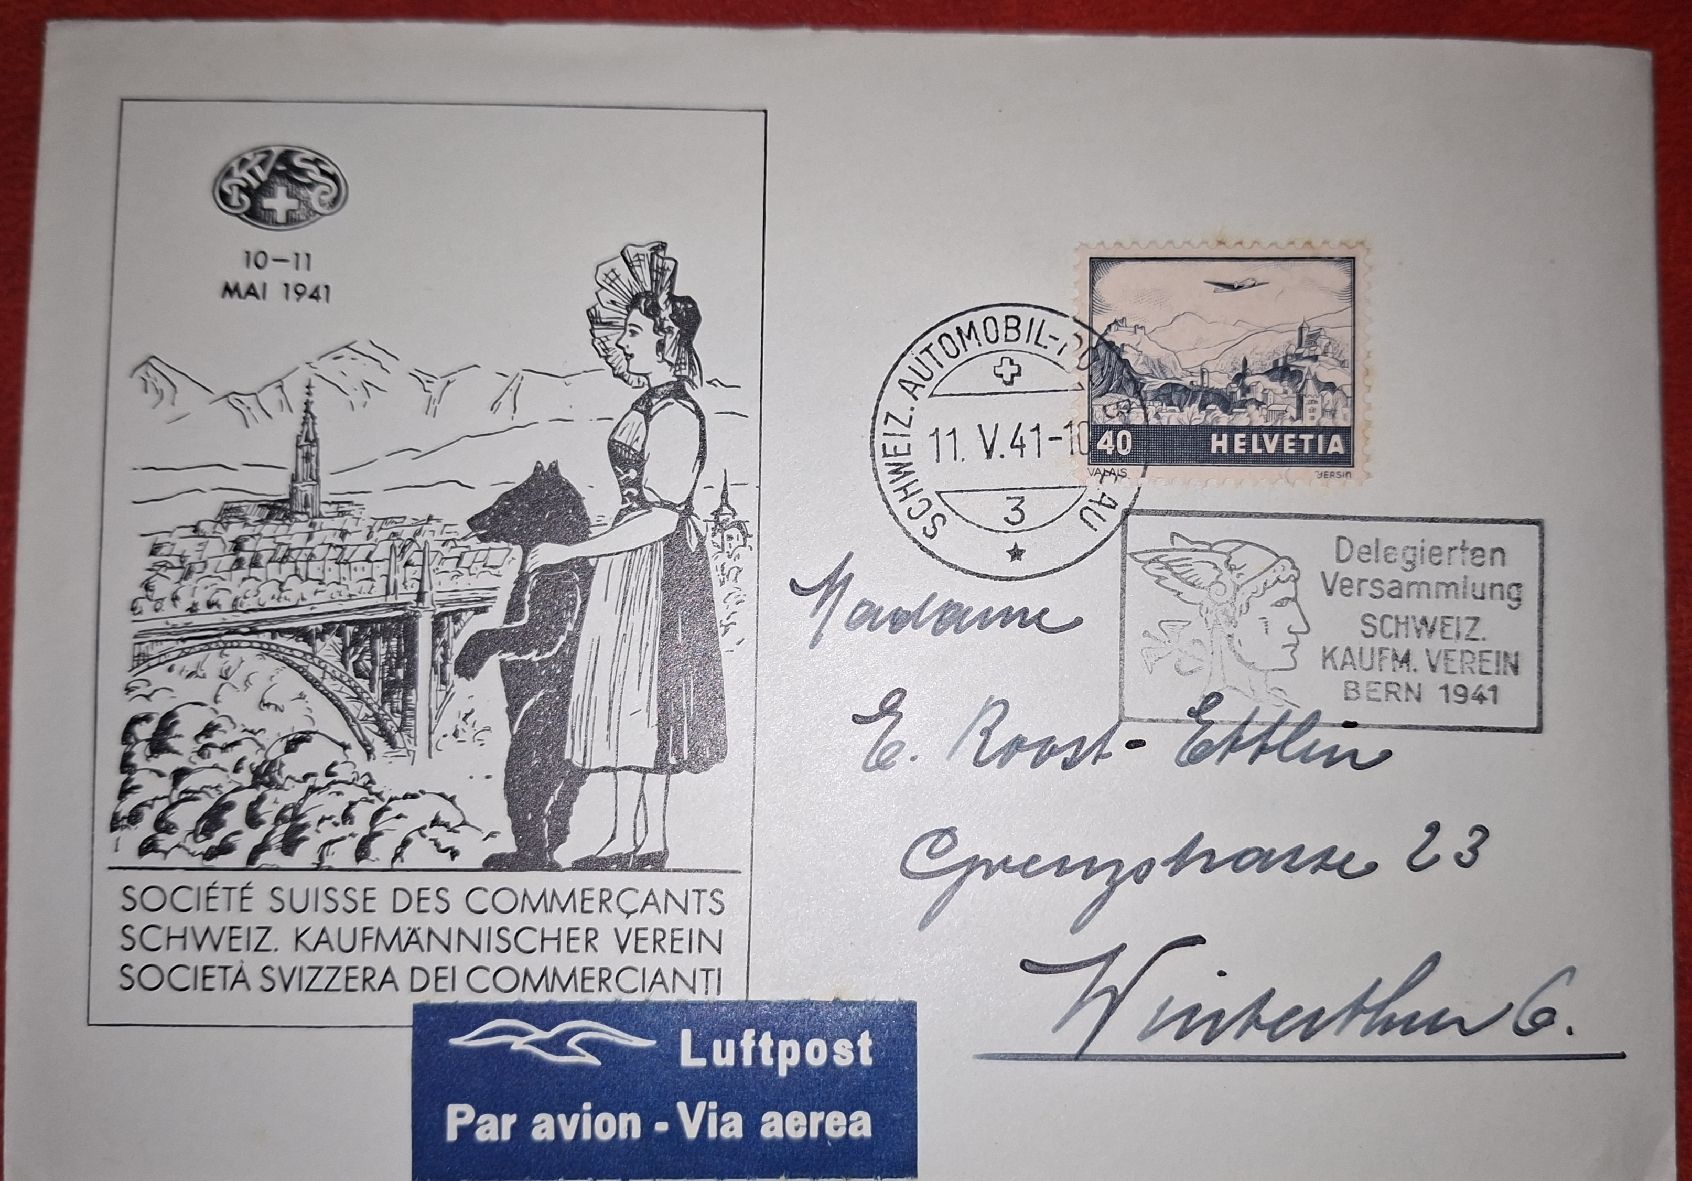 SKV SSC
10–11
MAI 1941
SOCIÉTÉ SUISSE DES COMMERÇANTS
SCHWEIZ. KAUFMÄNNISCHER VEREIN
SOCIETÀ SVIZZERA DEI COMMERCIANTI
Luftpost
Par avion - Via aerea
SCHWEIZ. AUTOMOBIL-
11. V. 41-10
3
40 HELVETIA
VALAIS
Delegierten
Versammlung
SCHWEIZ.
KAUFM. VEREIN
BERN 1941
Madame
E. Roost-Ettlin
Grenzstrasse 23
Winterthur 6.